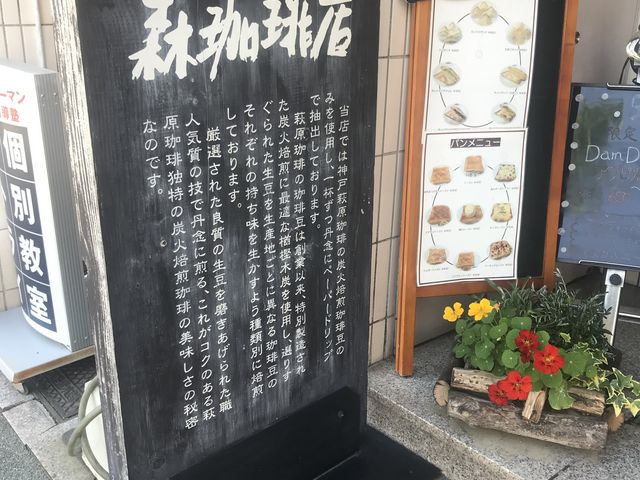 森珈琲店
当店では神戸萩原珈琲の炭火焙煎珈琲豆の
みを使用し、一杯ずつ丹念にペーパードリップ
で抽出しております。
萩原珈琲の珈琲豆は創業以来、特別製造され
た炭火焙煎に最適な楢樫木炭を使用し、選りす
ぐられた生豆を生産地ごとに異なる珈琲豆の
それぞれの持ち味を生かすよう種類別に焙煎
しております。
厳選された良質の生豆を磨きあげられた職
人気質の技で丹念に煎る、これがコクのある萩
原珈琲独特の炭火焙煎珈琲の美味しさの秘密
なのです。
パンメニュー
個別教室
限定
DanD